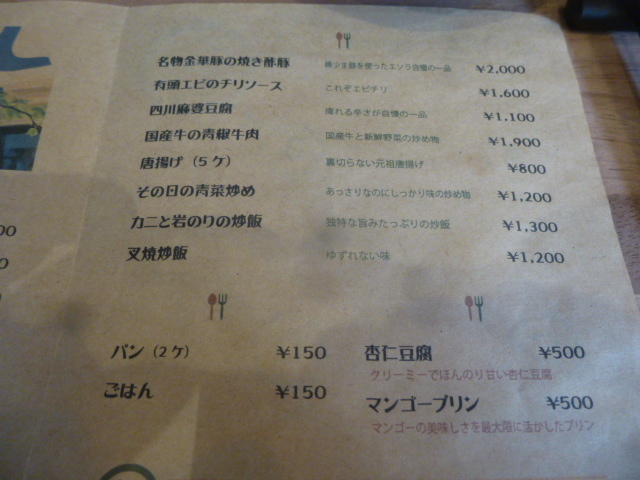 名物金華豚の焼き酢豚 を使ったエソラ自慢の一品 ¥2,000
有頭エビのチリソース これぞエビチリ ¥1,600
四川麻婆豆腐 痺れる辛さが自慢の一品 ¥1,100
国産牛の青椒牛肉 国産牛と新鮮野菜の炒め物 ¥1,900
唐揚げ（5ケ） 裏切らない元祖唐揚げ ¥800
その日の青菜炒め あっさりなのにしっかり味の炒め物 ¥1,200
カニと岩のりの炒飯 独特な旨みたっぷりの炒飯 ¥1,300
叉焼炒飯 ゆずれない味 ¥1,200
パン（2ケ） ¥150
ごはん ¥150
杏仁豆腐 ¥500
クリーミーでほんのり甘い杏仁豆腐
マンゴープリン ¥500
マンゴーの美味しさを最大限に活かしたプリン